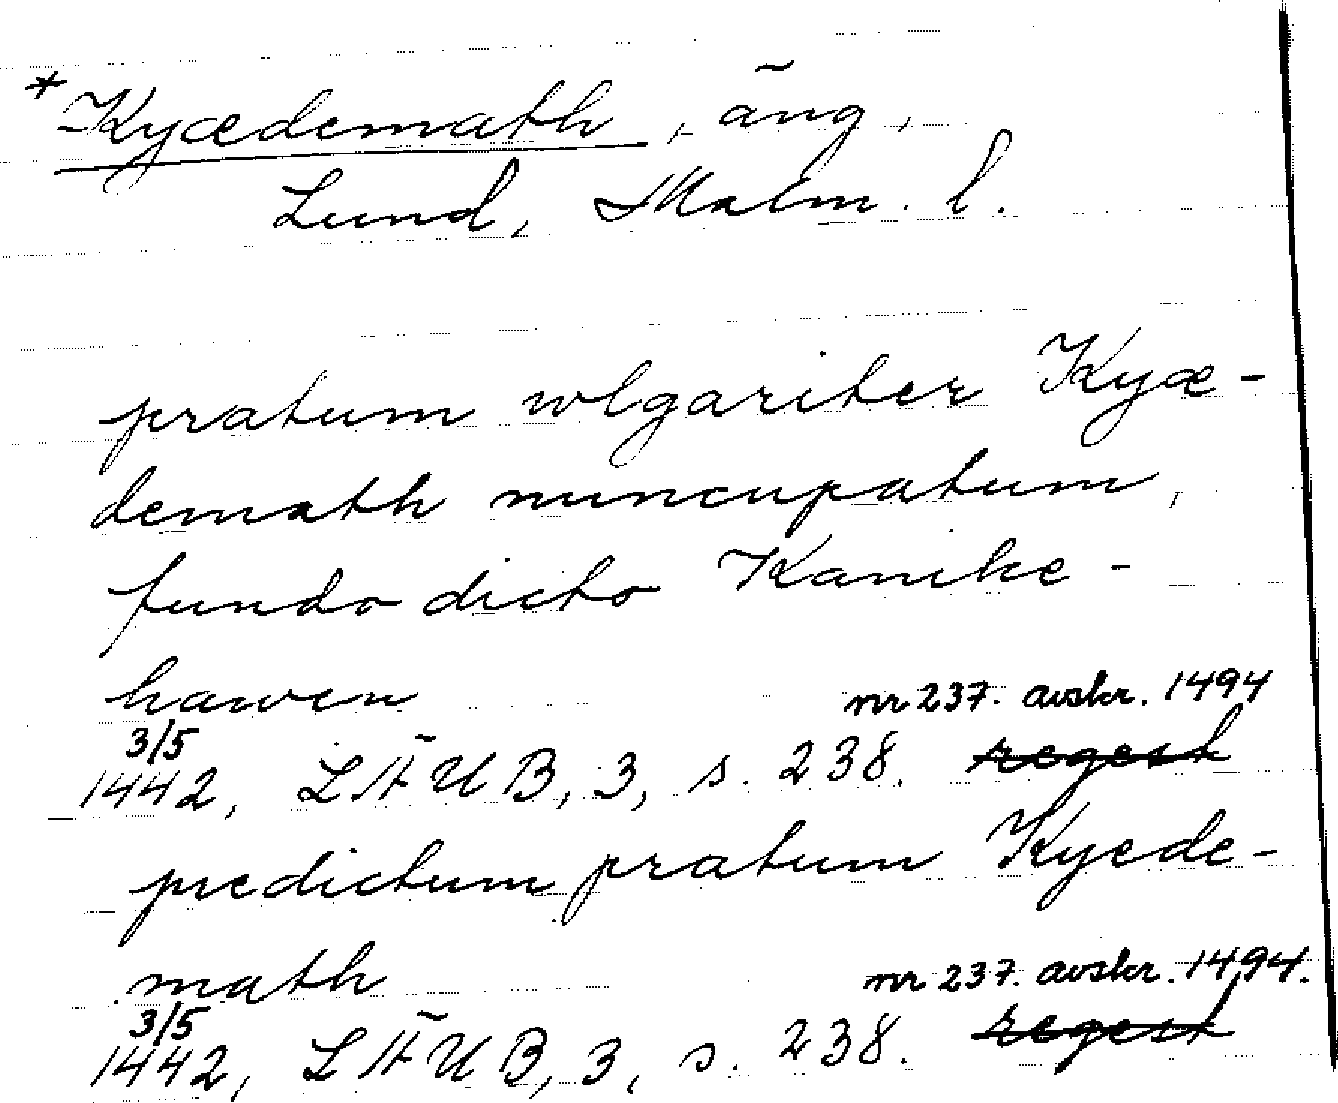 *Kyædemath, äng,
Lund, Malm. l.
pratum wlgariter Kyæ-
demath nuncupatum,
fundo dicto Kanike-
hawen nr 237. avskr. 1494
3/5
1442, LÄUB, 3, s. 238. regest
predictum pratum Kyede-
math nr 237. avskr. 1494.
3/5
1442, LÄUB, 3, s. 238. regest